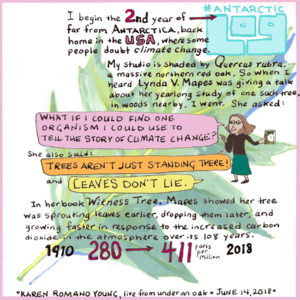 I begin the 2nd year of
#ANTARCTIC
LOG
far from ANTARCTICA, back
home in the USA, where some
people doubt climate change.
My studio is shaded by Quercus rubra,
a massive northern red oak. So when I
heard Lynda V. Mapes was giving a talk
about her yearlong study of one such tree,
in woods nearby, I went. She asked:
WHAT IF I COULD FIND ONE
ORGANISM I COULD USE TO
TELL THE STORY OF CLIMATE CHANGE?
She also said:
TREES AREN'T JUST STANDING THERE!
and LEAVES DON'T LIE.
In her book Wieness Tree, Mapes showed her tree
was sprouting leaves earlier, dropping them later, and
growing faster in response to the increased carbon
dioxide in the atmosphere over its 108 years.
1910 280 → 411 parts per million 2018
*KAREN ROMANO YOUNG, live from under an oak * JUNE 14, 2018*